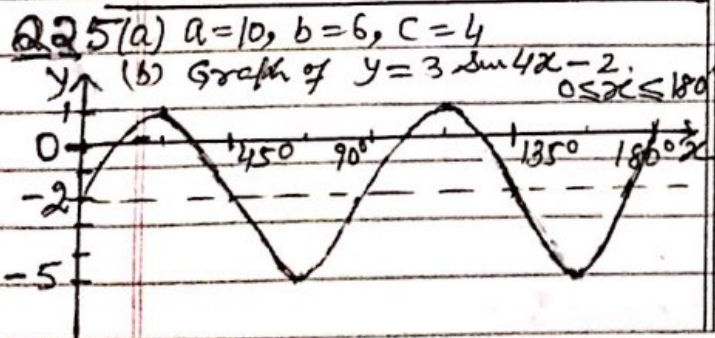 225(a) a=10, b=6, c=4
(b) Graph of y=3 sin4x-2.
0≤x≤180
y
1
0 45° 90° 135° 180° x
-2
-5